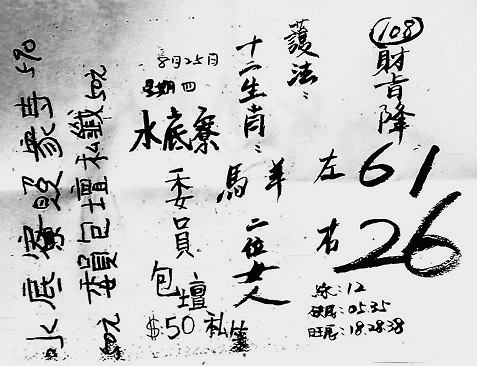 (108)
財旨降
左 61
右 26
12
05.35
旺尾:18.28.38
護法:
十二生肖:
馬 羊 二位女人
8月25日
星期四
水底寮
委員
包壇
$:50 私籤
委員包壇私籤50元
水底寮